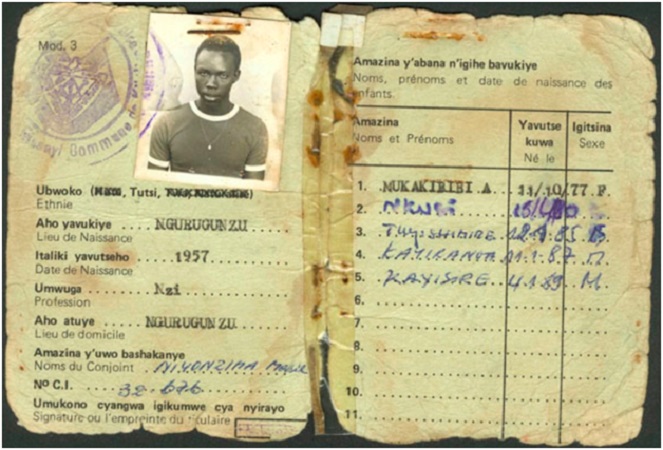 Mod. 3
Commune de
Ubwoko (Hutu, Tutsi,
Ethnie
Aho yavukiye ... NGURUGUNZU
Lieu de Naissance
Italiki yavutseho ... 1957
Date de Naissance
Umwuga ... Nzi
Profession
Aho atuye ... NGURUGUNZU
Lieu de domicile
Amazina y'uwo bashakanye
Noms du Conjoint NIYONZIMA
Nº C.I. 32.676
Umukono cyangwa igikumwe cya nyirayo
Signature ou l'empreinte du titulaire
Amazina y'abana n'igihe bavukiye
Noms, prénoms et date de naissance des
enfants.
Amazina Yavutse Igitsina
Noms et Prénoms kuwa Sexe
Né le
1. MUKAKIBIBI A. 11/10/77 F.
2.
3. 85
4. 87 M
5. KAYISIRE 4.1.89 M.
6.
7.
8.
9.
10.
11.